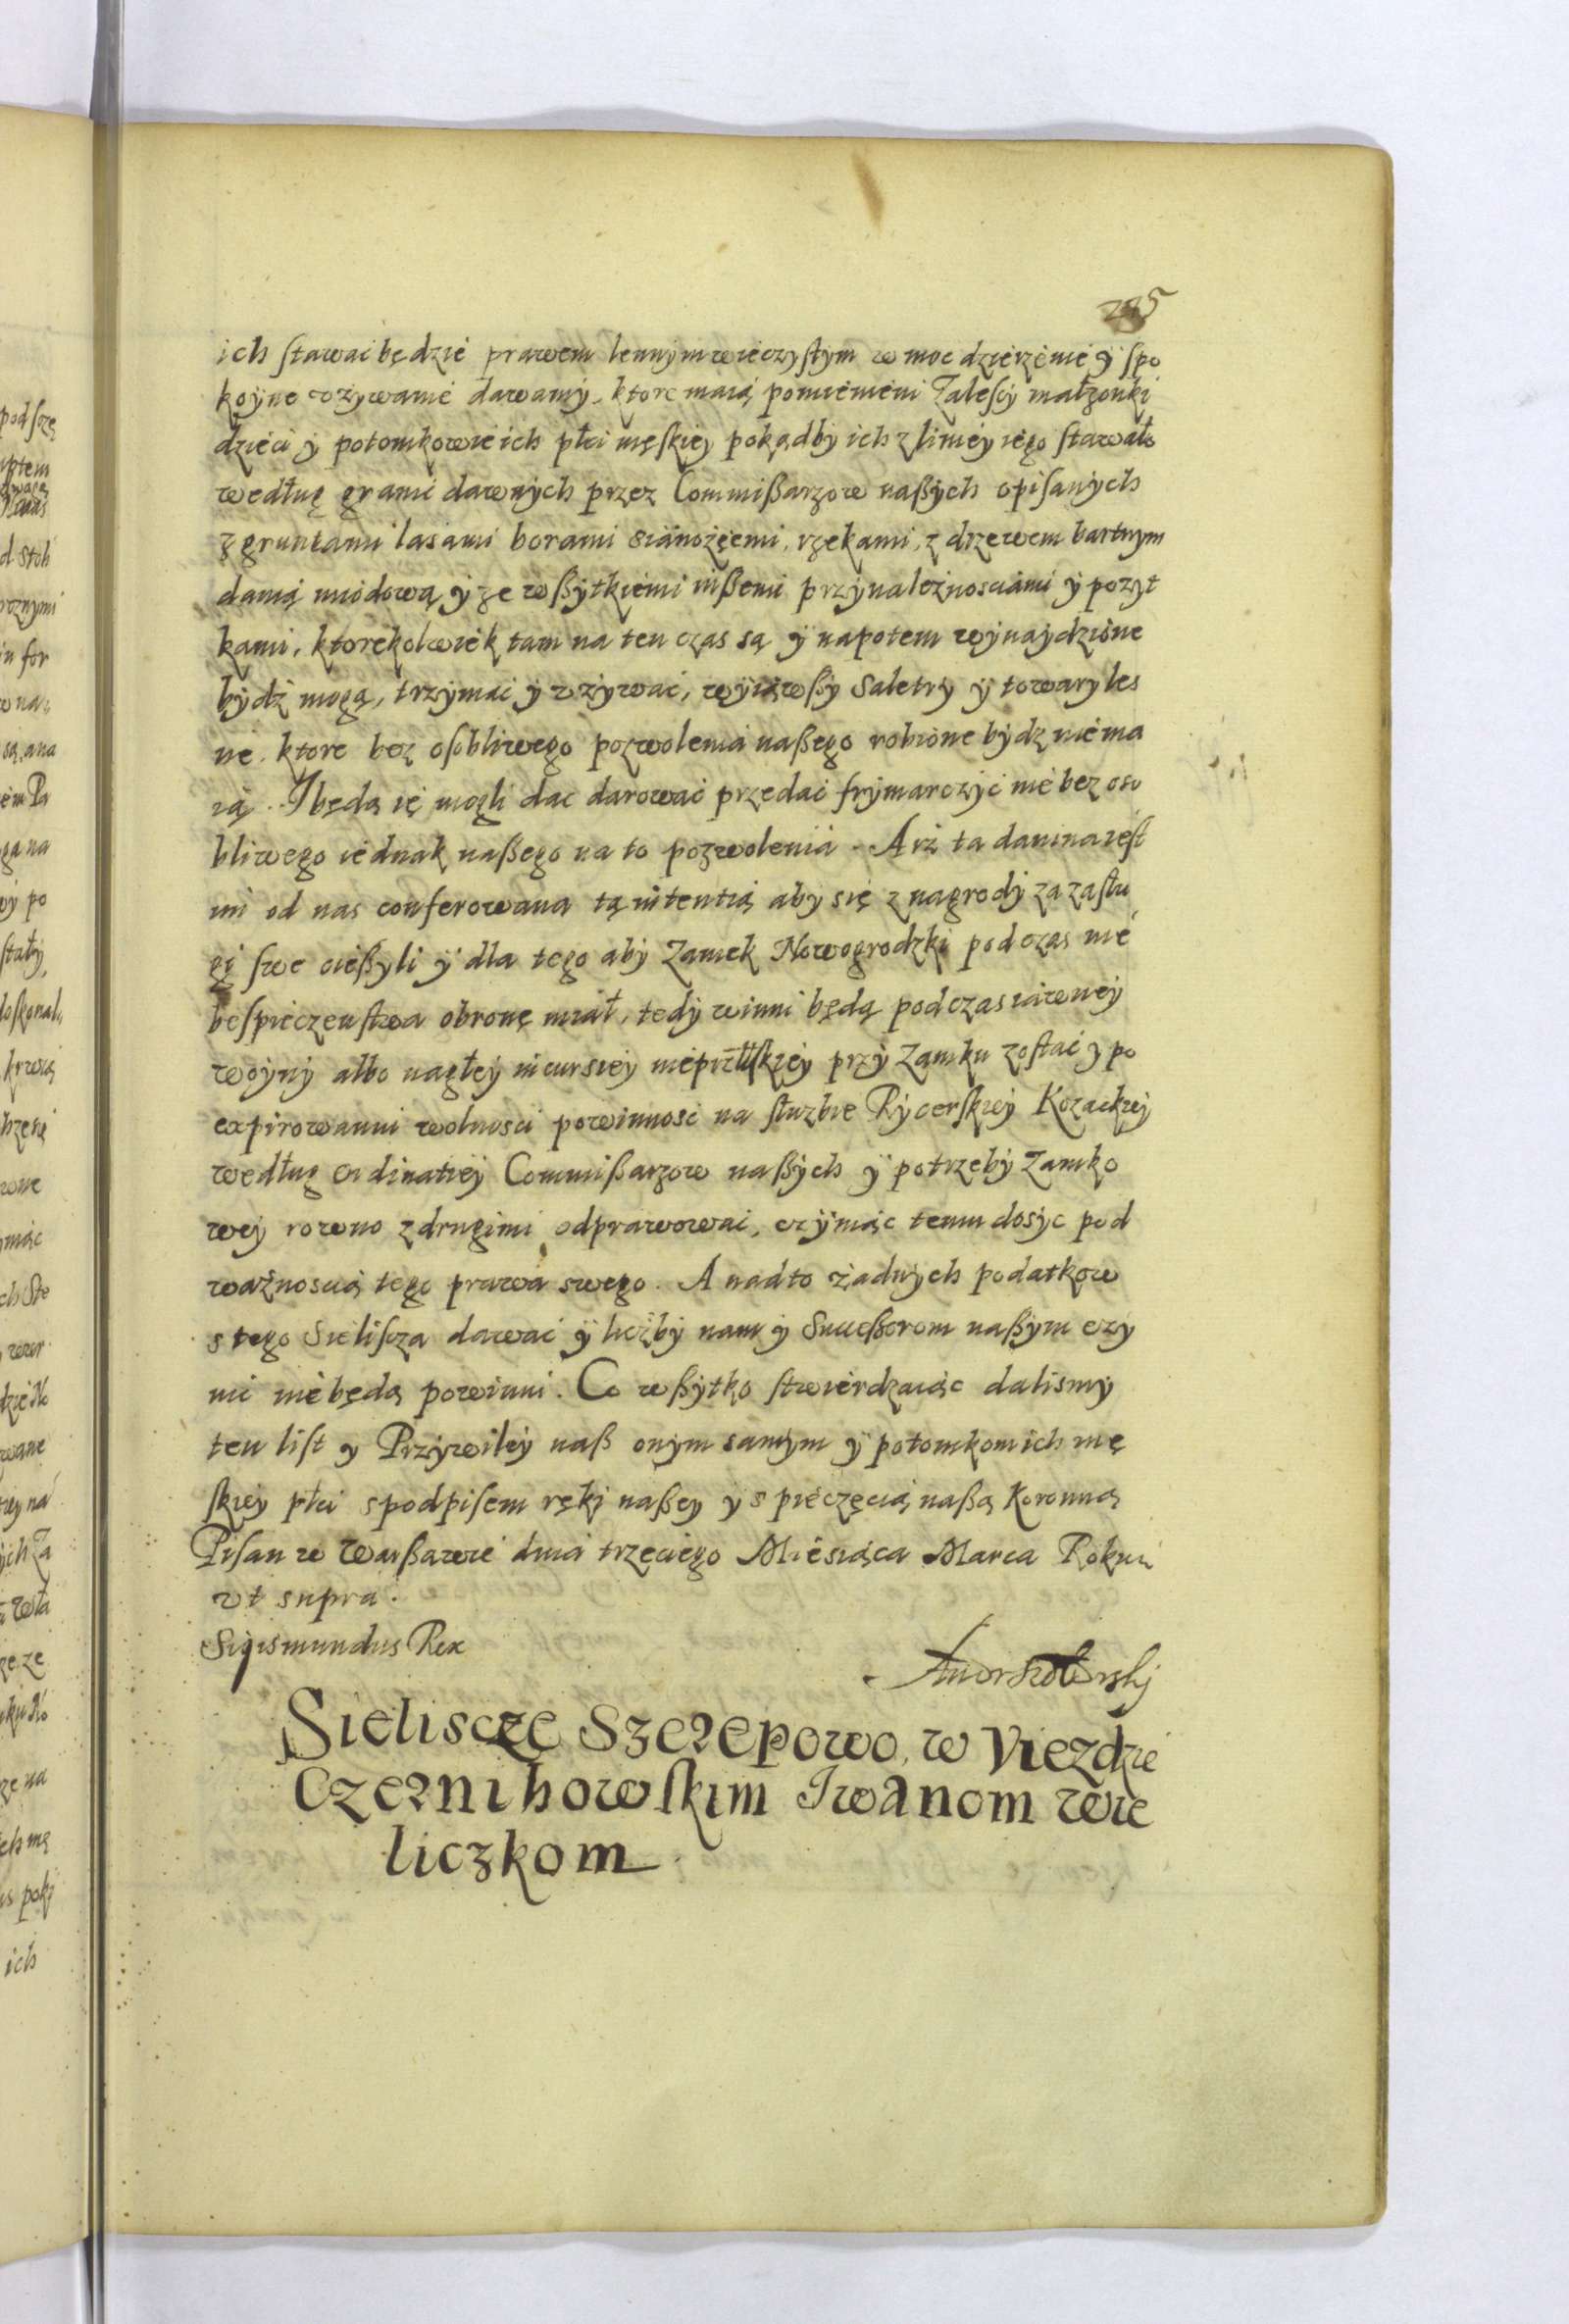 ich stawać będzie prawem lennym wieczystym w moc dzierżenie y spo
koyne vżywanie dawamy, ktore maią pomienieni Zalescy małżonki
dzieci y potomkowie ich płci męskiey pokądby ich z liniey iego stawało
według granic dawnych przez Commißarzow naßych opisanych
z gruntami lasami borami sianożęćmi, rzekami, z drzewem bartnym
danią miodową y ze wßytkiemi inßemi przynależnosciami y pożyt
kami, ktorekolwiek tam na ten czas są y napotem wynaydzione
bydź mogą, trzymać y vżywać, wyiąwßy Saletry y towary les
ne, ktore bez osobliwego pozwolenia naßego robione bydz niema
ią. I będą ię mogli dac darować przedać frymarczyć nie bez oso
bliwego iednak naßego na to pozwolenia. A iż ta danina iest
im od nas conferowana tą intentią aby się z nagrody za zasłu
gi swe cießyli y dla tego aby Zamek Nowogrodzki podczas nie
bespieczenstwa obronę miał, tedy winni będą podczas iawney
woyny albo nagłey incursiey nieprzllskiey przy Zamku zostać y po
expirowaniu wolnosci powinnosc na służbie Rycerskiey Kozackiey
według ordinatiey Commißarzow naßych y potrzeby Zamko
wey rowno z drugimi odprawować, czyniąc temu dosyc pod
ważnoscią tego prawa swego. A nadto żadnych podatkow
s tego Sielisca dawać y liczby nam y Sucessorom naßym czy
nić niebędą powinni. Co wßytko stwierdzaiąc dalismy
ten list y Przywiley naß onym samym y potomkom ich mę
skiey płci s podpisem ręki naßey y s pieczęcią naßą Koronną
Pisan w Warßawie dnia trzeciego Miesiąca Marca Roku
vt supra.
Sigismundus Rex
Sieliscze Szerepowo, w Viezdzie
Czernihowskim Iwanom Wie
liczkom